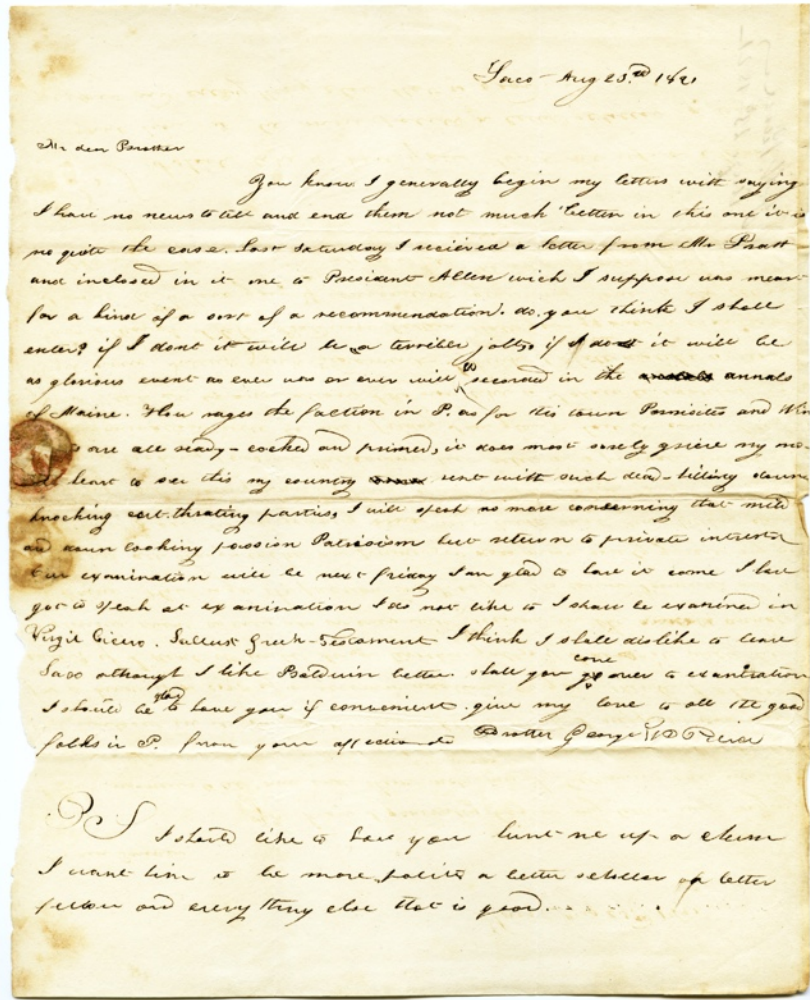 Saco - Aug 23.rd 1821
My dear Brother
You know I generally begin my letters with saying
I have no news to tell and end them not much better in this one it is
no quite the case. Last saturday I recieved a letter from Mr Pratt
and inclosed in it one to President Allen wich I suppose was meant
for a kind of a sort of a recommendation. do you think I shall
enter? if I dont it will be a terrible jolt, if I do it will be
as glorious event as ever was or ever will be recorded in the annals
of Maine. How rages the faction in P. as for this town Parisites and
are all ready-cocked and primed, it does most sorely grieve my
heart to see this my country rent with such dead-killing down
knocking cut.throating parties, I will speak no more conserning that mild
and down looking passion Patriotism but return to private interest
Our examination will be next friday I am glad to have it come I have
got to speak at examination I do not like to I shall be examined in
Virgil Cicero. Sallust Greek-Testament I think I shall dislike to leave
Saco although I like Baldwin better. shall you come over to examination
I should be glad to have you if convenient. give my love to all the good
folks in P. from your affectionate Brother George W Pierce
PS I should like to have you hunt me up a chum
I want him to be more polite a better scholar a better
person and every thing else that is good. . . . . .